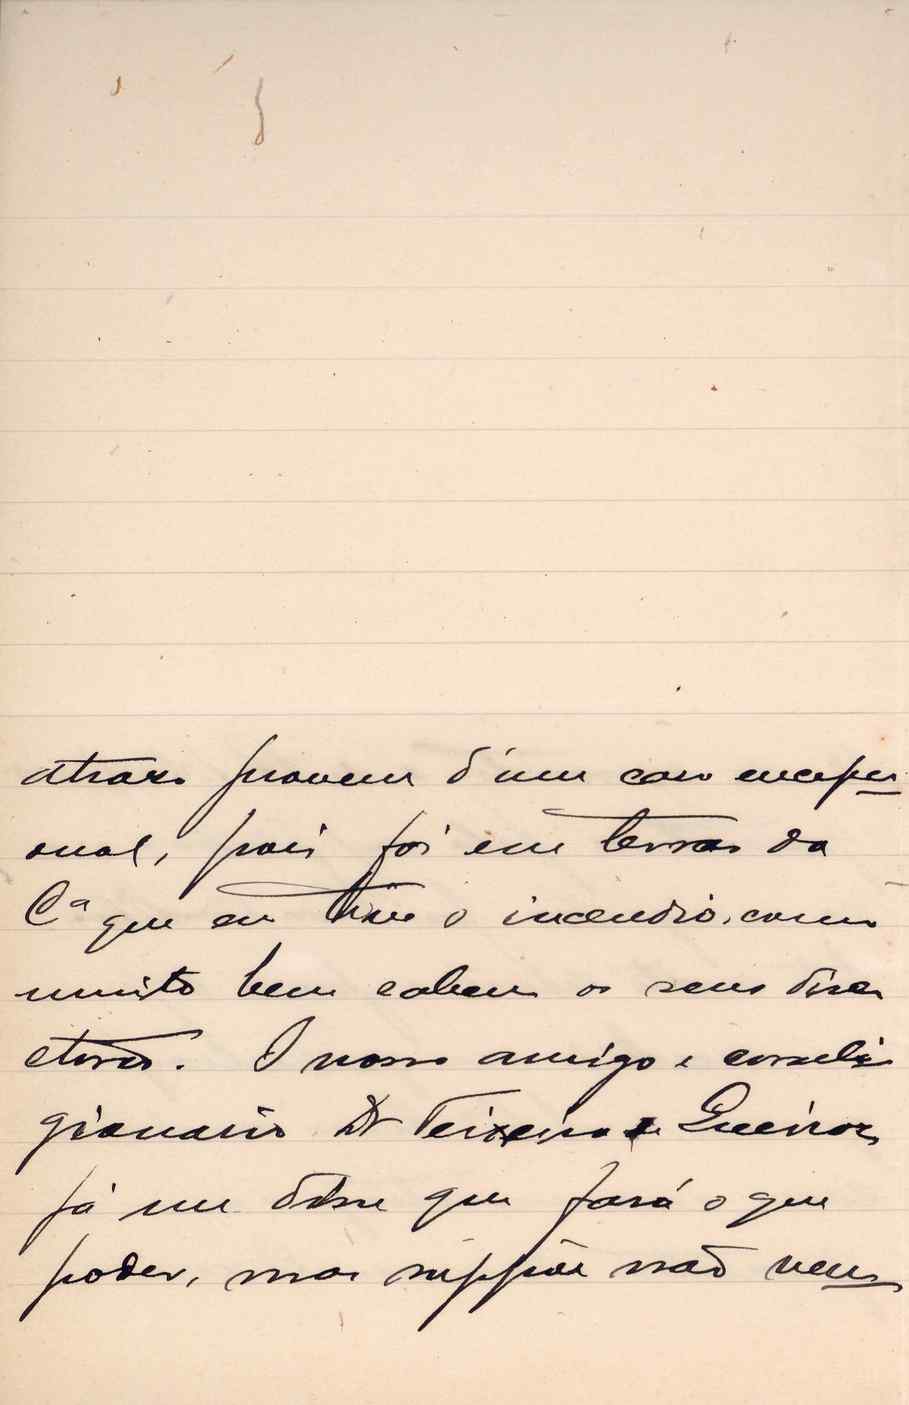 atraso provem d'um caso excepci
onal, pois foi em terras da
Cª que eu tive o incendio, como
muito bem sabem os seus dire
ctores. O nosso amigo e correli
gionario Dr Teixeira de Queiroz
já me disse que fará o que
poder, mas suppõe não ven